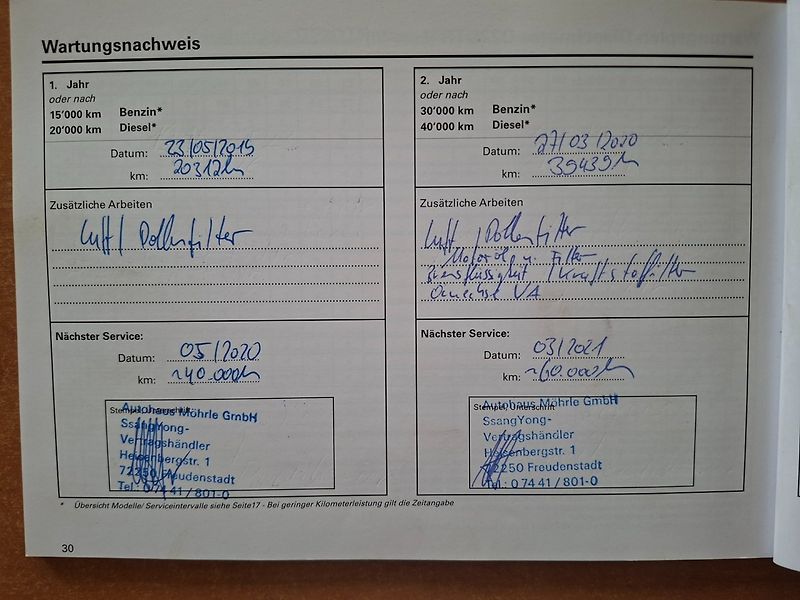 Wartungsnachweis
1. Jahr
oder nach
15'000 km Benzin*
20'000 km Diesel*
Datum: 23/05/2019
km: 20312km
Zusätzliche Arbeiten
Luft / Pollenfilter
Nächster Service:
Datum: 05/2020
km: ~40.000km
Stempel/Unterschrift
Autohaus Möhrle GmbH
SsangYong-
Vertragshändler
Heisenbergstr. 1
72250 Freudenstadt
Tel.: 0 74 41 / 801-0
2. Jahr
oder nach
30'000 km Benzin*
40'000 km Diesel*
Datum: 27/03/2020
km: 39439km
Zusätzliche Arbeiten
Luft / Pollenfilter
Motoröl u. Filter
/ Kraftstofffilter
VA
Nächster Service:
Datum: 03/2021
km: ~60.000km
Stempel/Unterschrift
Autohaus Möhrle GmbH
SsangYong-
Vertragshändler
Heisenbergstr. 1
72250 Freudenstadt
Tel.: 0 74 41 / 801-0
* Übersicht Modelle/ Serviceintervalle siehe Seite17 - Bei geringer Kilometerleistung gilt die Zeitangabe
30